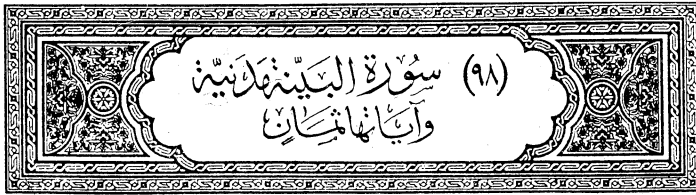 (٩٨) سُورَة البَيّنَة مَدَنيَّة
وَآيَاتهَا ثمَانٍ